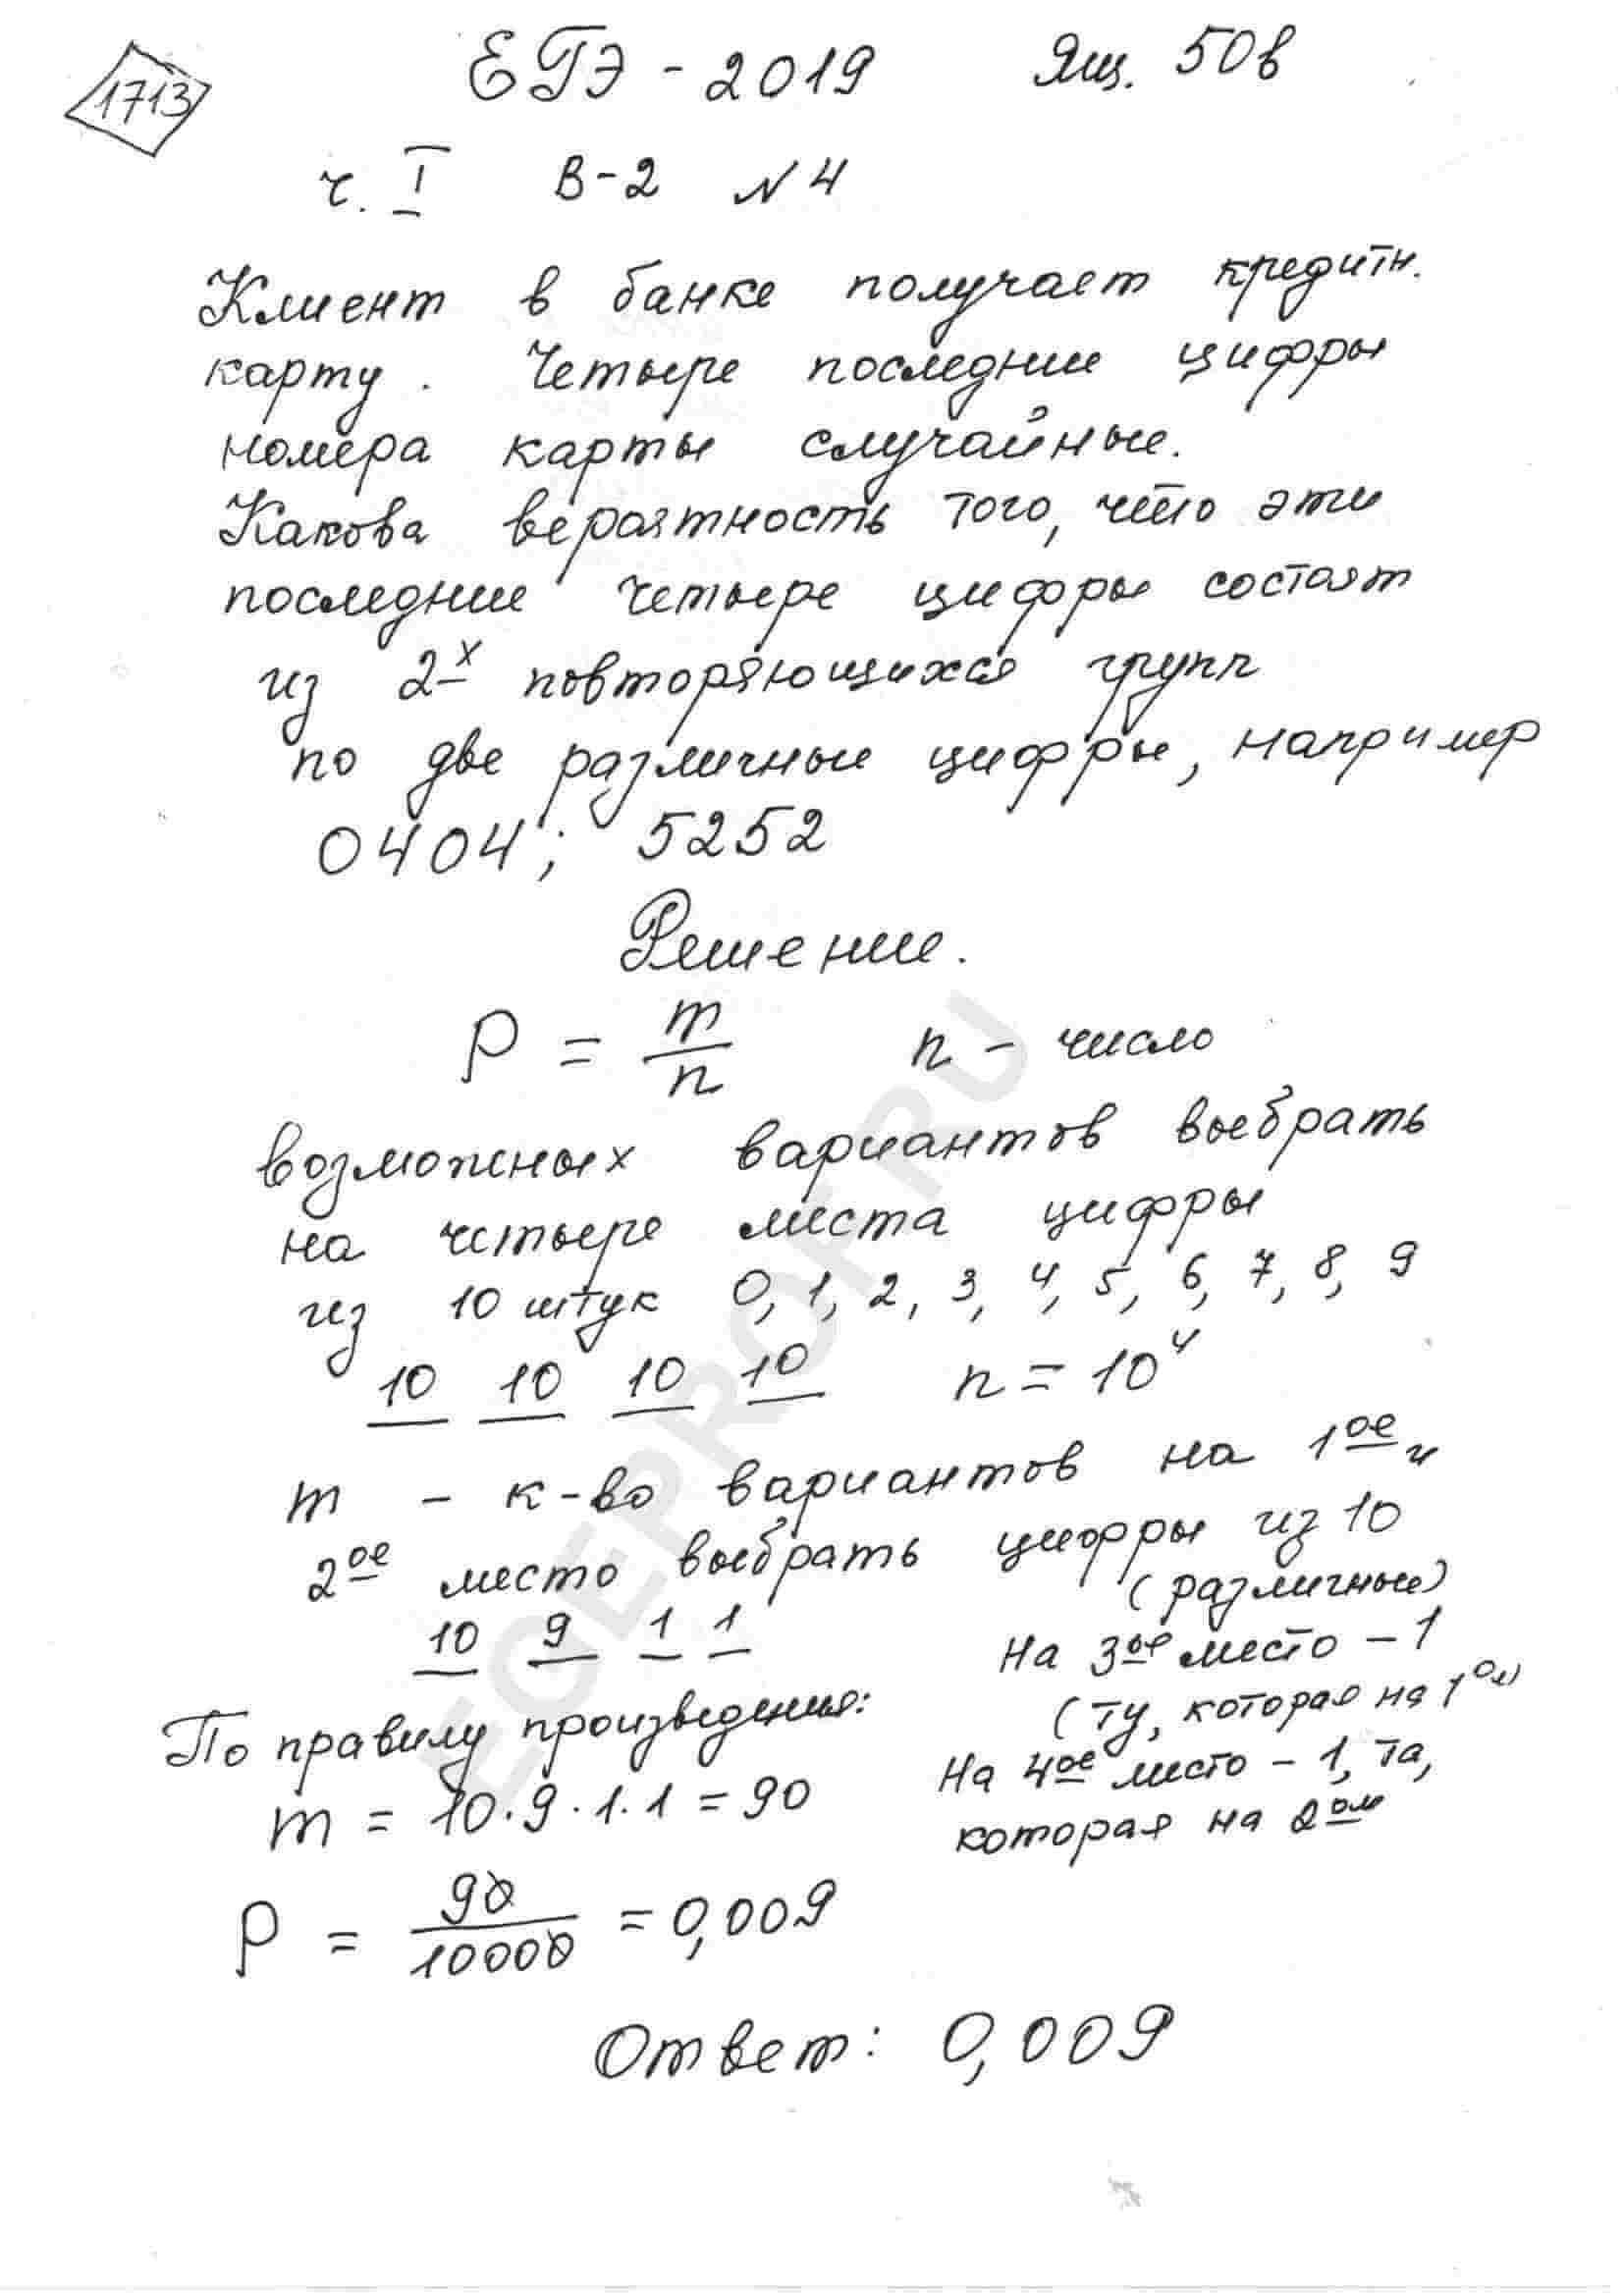 1713
ЕГЭ - 2019 Ящ. 50в
ч. I В-2 N 4
Клиент в банке получает кредитн.
карту. Четыре последние цифры
номера карты случайные.
Какова вероятность того, что эти
последние четыре цифры состоят
из 2х повторяющихся групп
по две различные цифры, например
0404; 5252
Решение.
P = m/n n - число
возможных вариантов выбрать
на четыре места цифры
из 10 штук 0, 1, 2, 3, 4, 5, 6, 7, 8, 9
10 10 10 10 n = 10⁴
m - к-во вариантов на 1ое и
2ое место выбрать цифры из 10
(различные)
10 9 1 1
На 3ое место - 1
(ту, которая на 1ом)
По правилу произведения:
На 4ое место - 1, та,
которая на 2ом
m = 10·9·1·1 = 90
P = 90/10000 = 0,009
Ответ: 0,009
EGEPROF.RU